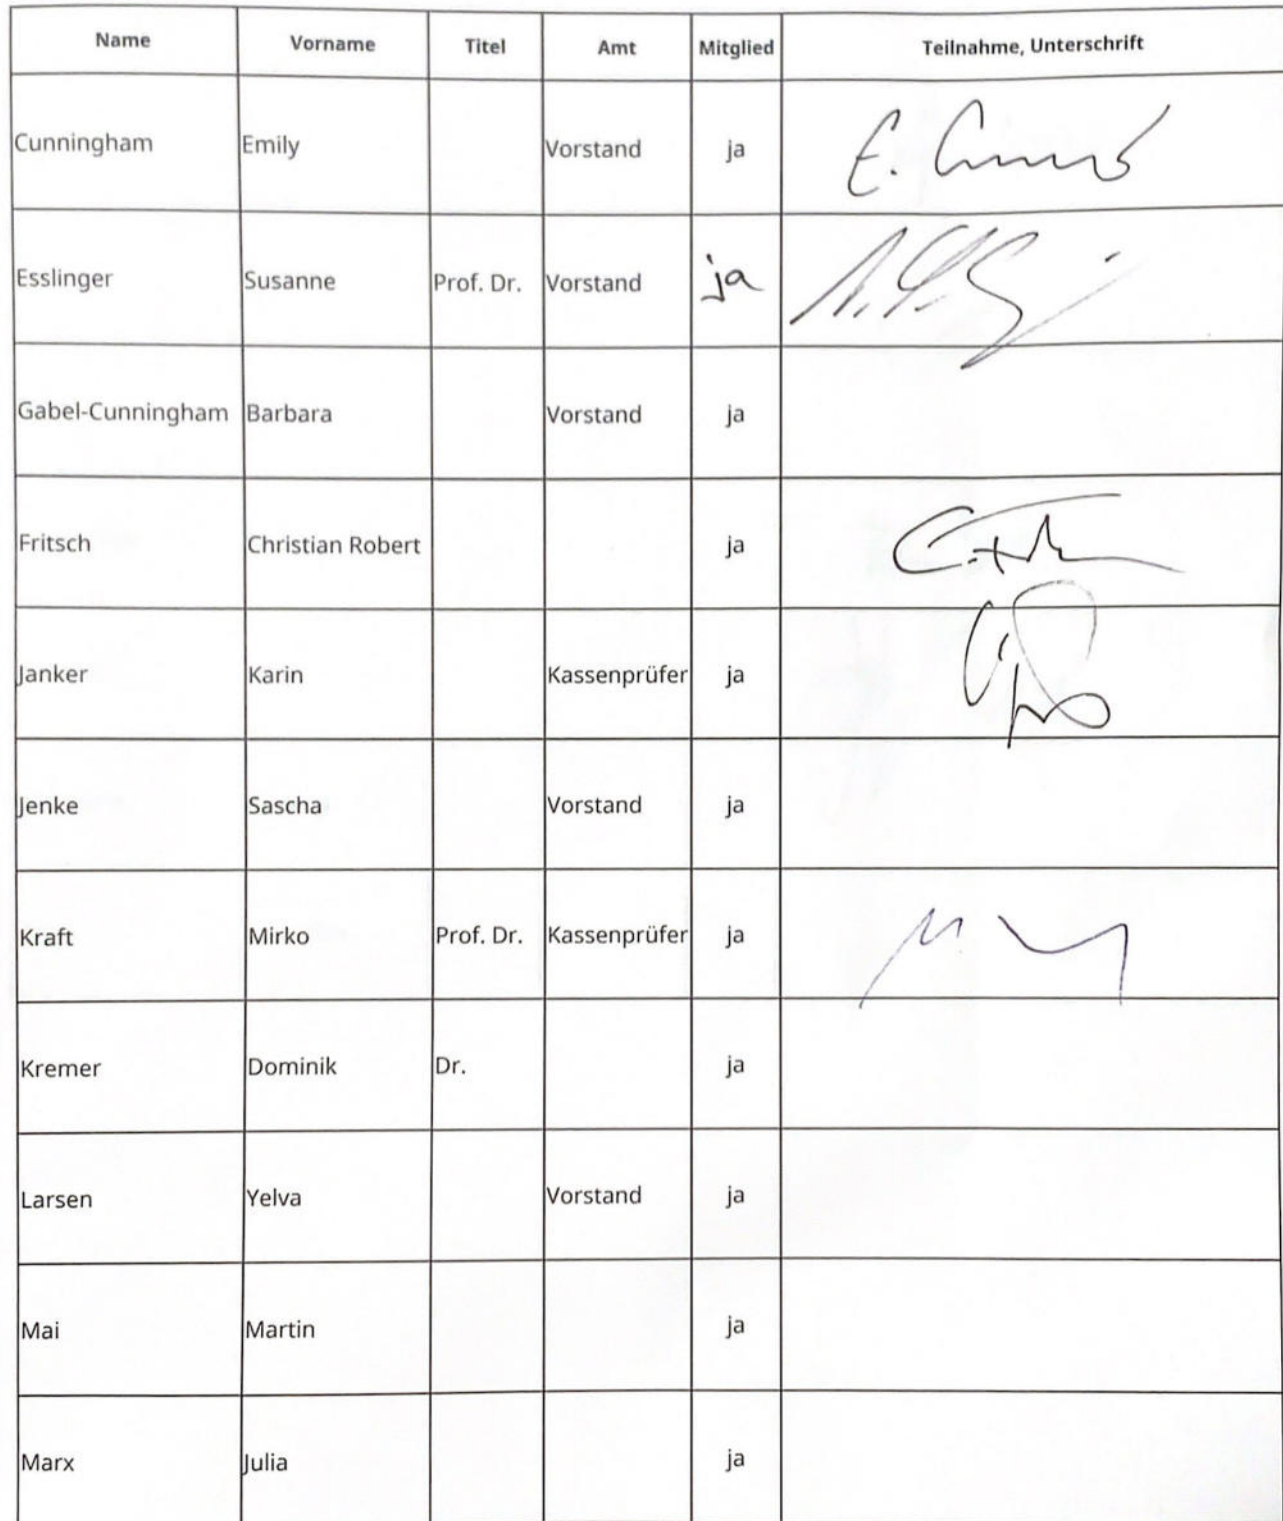 Name Vorname Titel Amt Mitglied Teilnahme, Unterschrift
Cunningham Emily Vorstand ja E.
Esslinger Susanne Prof. Dr. Vorstand ja
Gabel-Cunningham Barbara Vorstand ja
Fritsch Christian Robert ja
Janker Karin Kassenprüfer ja
Jenke Sascha Vorstand ja
Kraft Mirko Prof. Dr. Kassenprüfer ja
Kremer Dominik Dr. ja
Larsen Yelva Vorstand ja
Mai Martin ja
Marx Julia ja